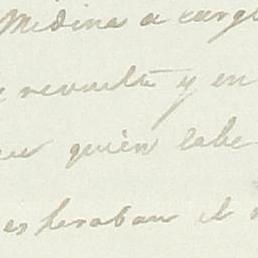 Medina a cargo
revuelta y en
quièn sabe
esperaban el